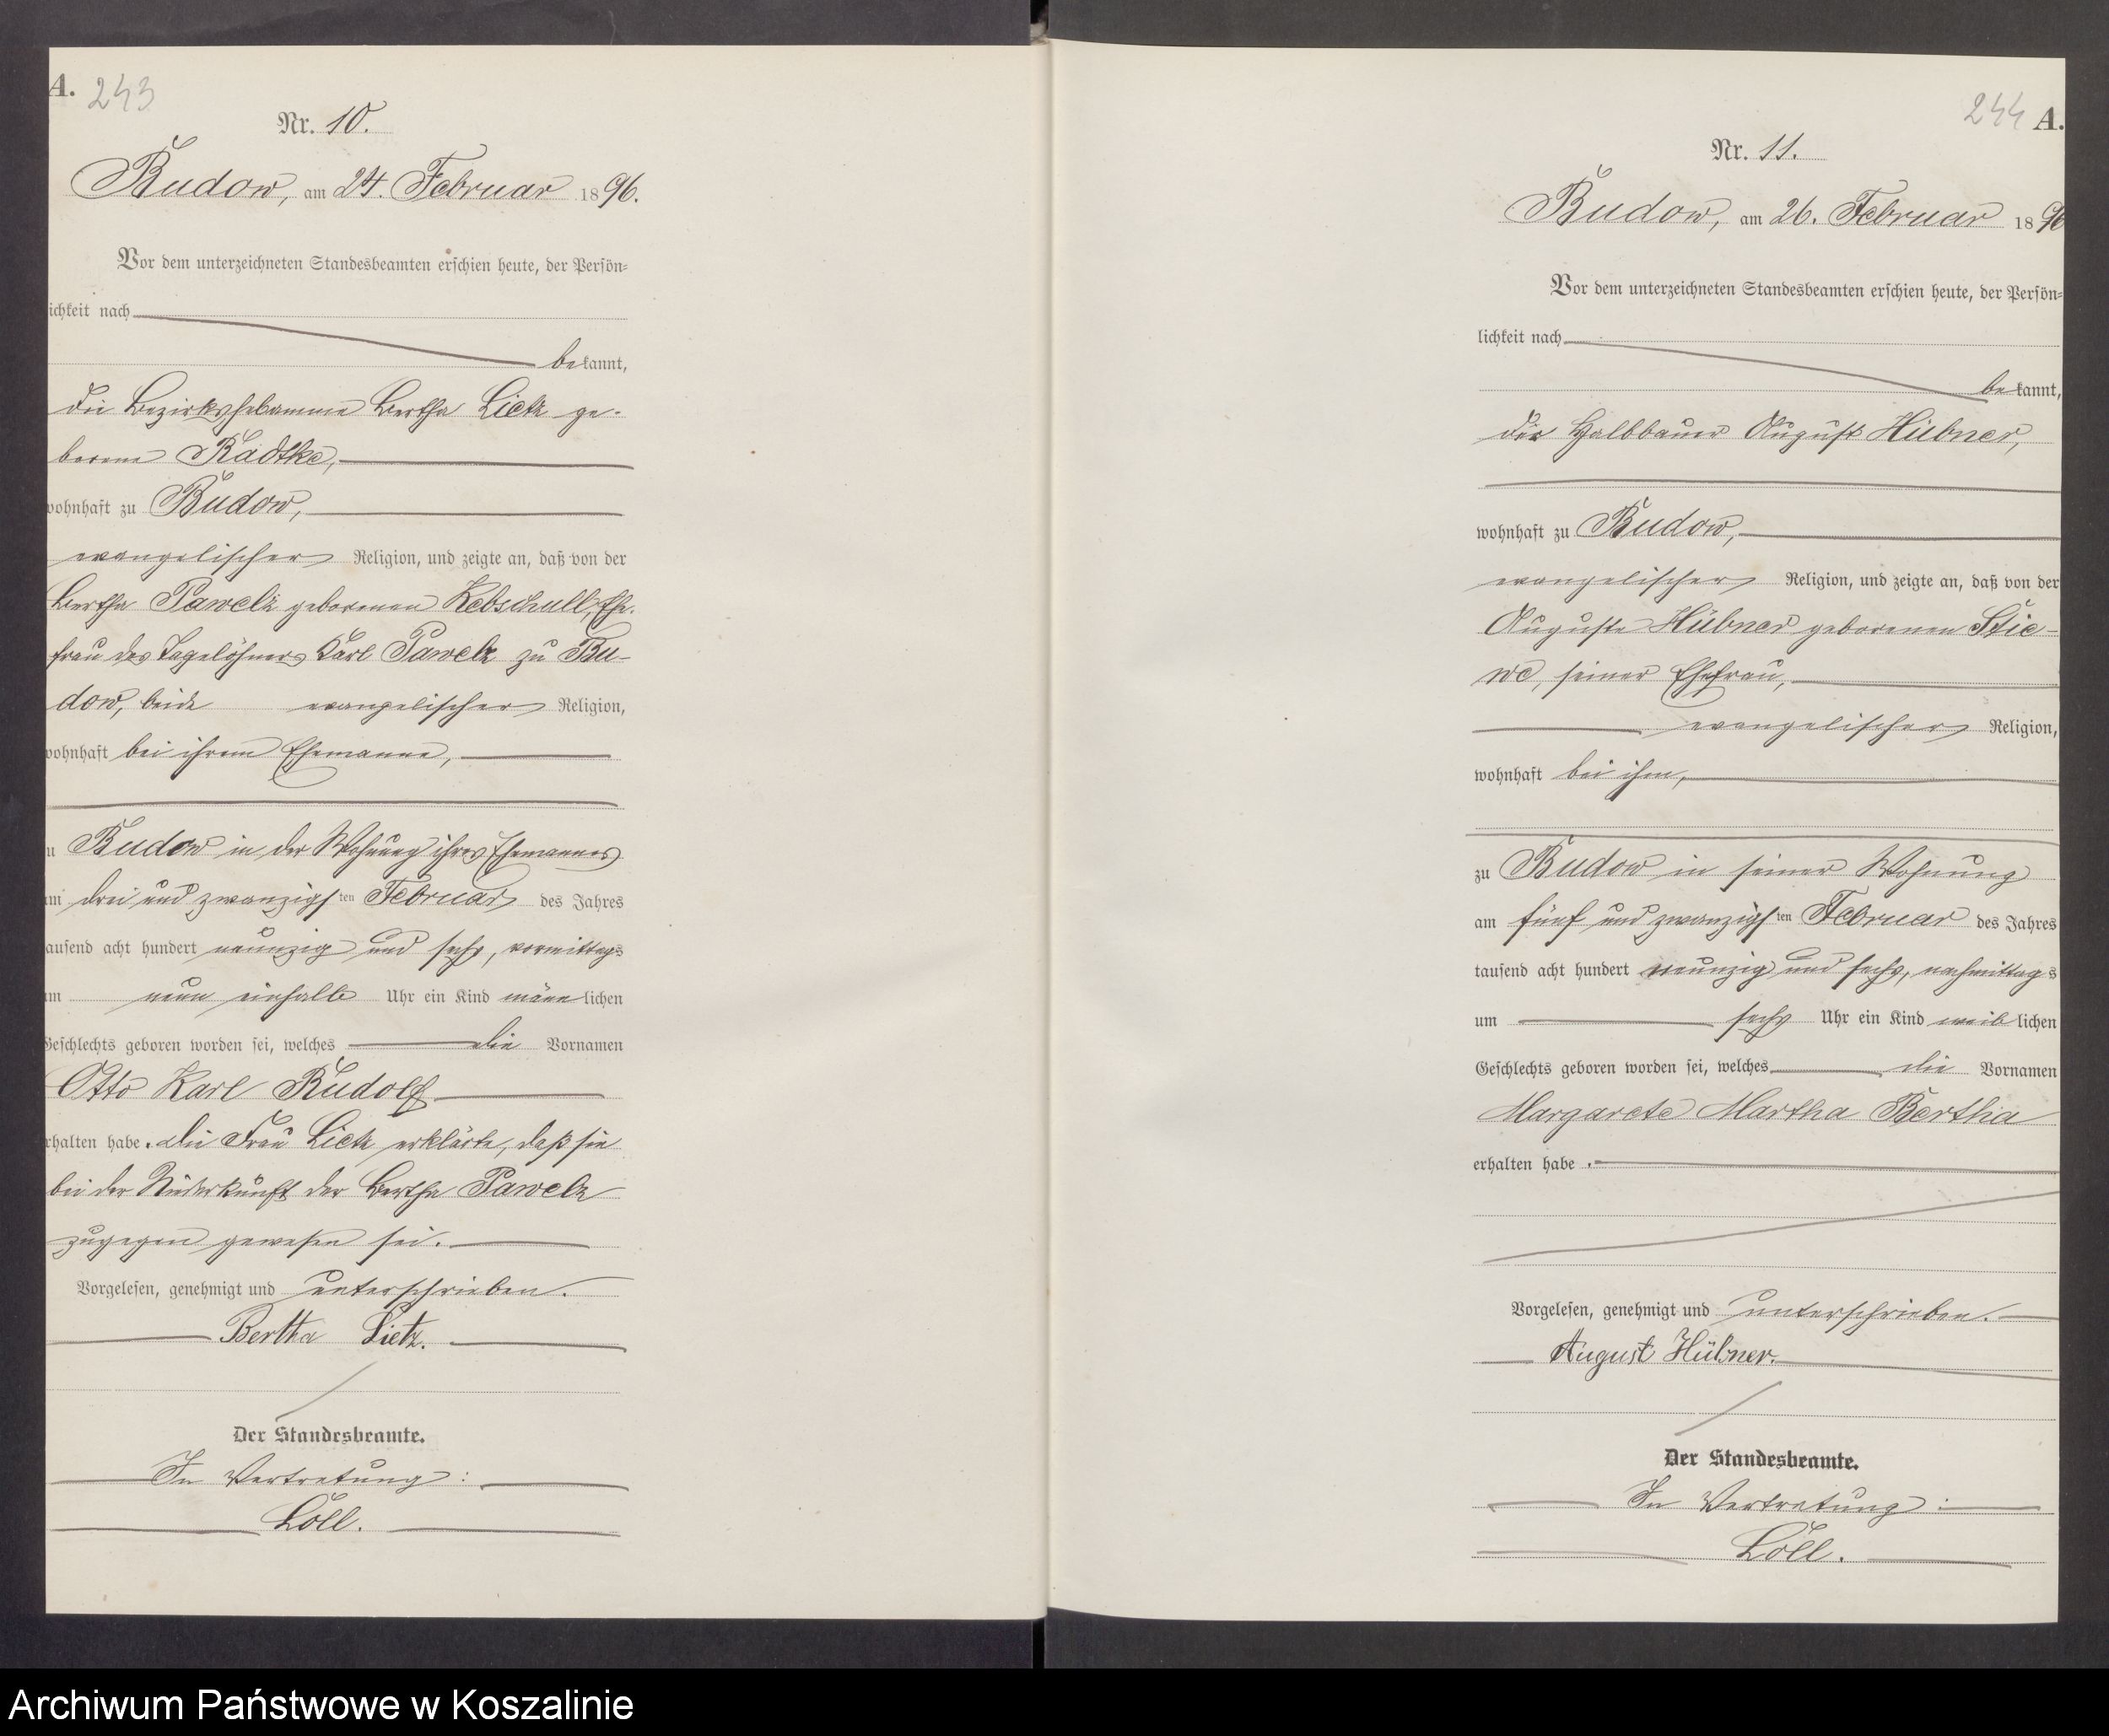 A. 243
Nr. 10.
Budow, am 24. Februar 1896.
Vor dem unterzeichneten Standesbeamten erschien heute, der Persön=
ichkeit nach
bekannt,
die Bezirkshebamme Bertha Lietz ge-
borene Radtke,
wohnhaft zu Budow,
evangelischer Religion, und zeigte an, daß von der
Bertha Pawelz geborenen Kebschull, Ehe-
frau des Tagelöhners Karl Pawelz zu Bu-
dow, beide evangelischer Religion,
wohnhaft bei ihrem Ehemanne,
u Budow in der Wohnung ihres Ehemannes
am drei und zwanzigsten Februar des Jahres
tausend acht hundert neunzig und sechs, vormittags
um neun einhalb Uhr ein Kind männlichen
Geschlechts geboren worden sei, welches die Vornamen
Otto Karl Rudolf
erhalten habe. Die Frau Lietz erklärte, daß sie
bei der Niederkunft der Bertha Pawelz
zugegen gewesen sei.
Vorgelesen, genehmigt und unterschrieben.
Bertha Lietz.
Der Standesbeamte.
In Vertretung:
Löll.
244 A.
Nr. 11.
Budow, am 26. Februar 1896
Vor dem unterzeichneten Standesbeamten erschien heute, der Persön=
lichkeit nach
bekannt,
der Halbbauer August Hübner,
wohnhaft zu Budow,
evangelischer Religion, und zeigte an, daß von der
Auguste Hübner geborenen Stie-
we, seiner Ehefrau,
evangelischer Religion,
wohnhaft bei ihm,
zu Budow in seiner Wohnung
am fünf und zwanzigsten Februar des Jahres
tausend acht hundert neunzig und sechs, nachmittags
um sechs Uhr ein Kind weiblichen
Geschlechts geboren worden sei, welches die Vornamen
Margarete Martha Bertha
erhalten habe.
Vorgelesen, genehmigt und unterschrieben.
August Hübner.
Der Standesbeamte.
In Vertretung:
Löll.
Archiwum Państwowe w Koszalinie